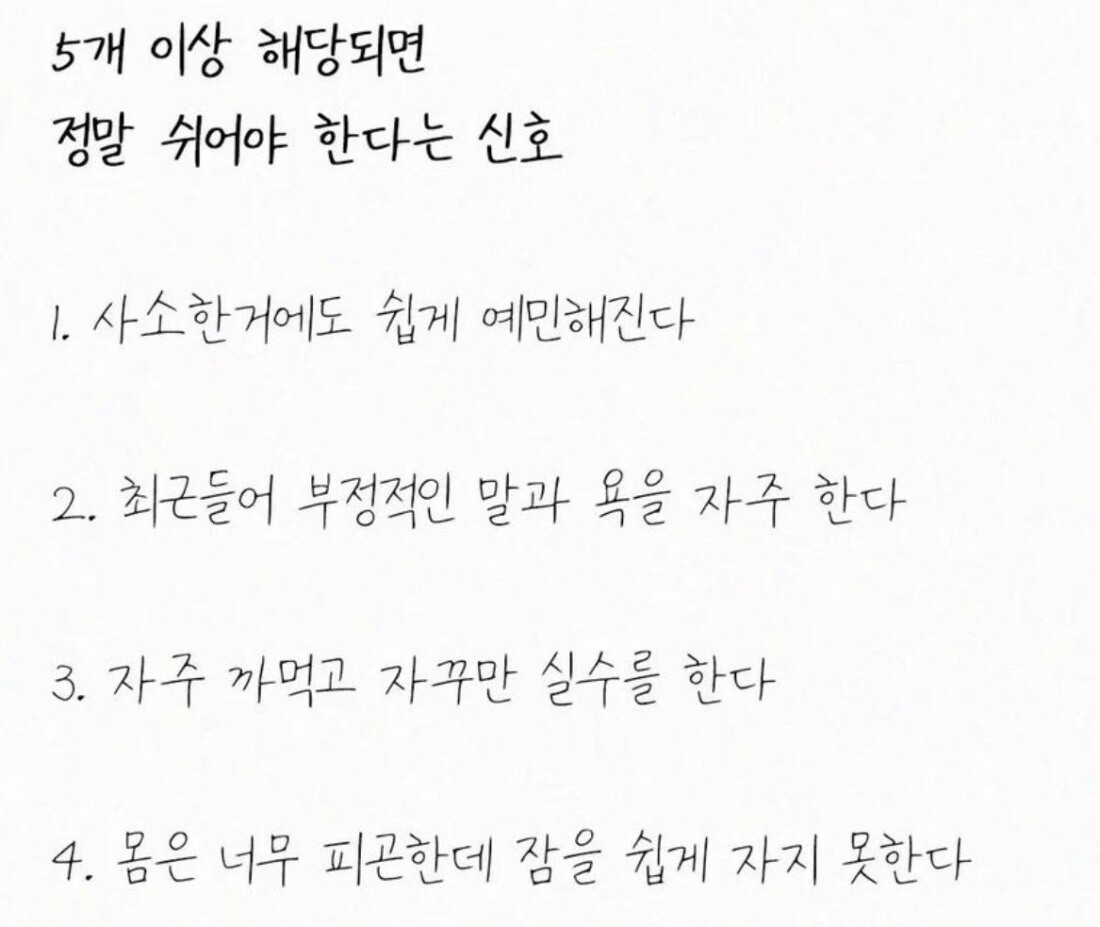 5개 이상 해당되면
정말 쉬어야 한다는 신호
1. 사소한거에도 쉽게 예민해진다
2. 최근들어 부정적인 말과 욕을 자주 한다
3. 자주 까먹고 자꾸만 실수를 한다
4. 몸은 너무 피곤한데 잠을 쉽게 자지 못한다